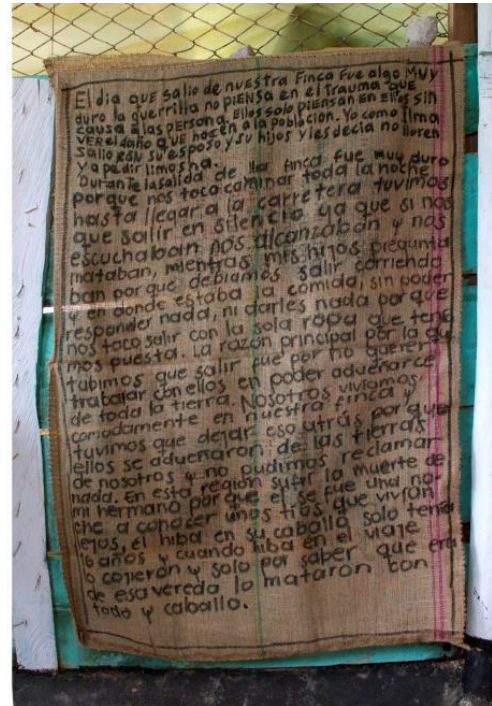 El dia que salio de nuestra Finca Fue algo MUY
duro la guerrilla no piensa en el trauma que
causa a las persona. Ellos solo piensan en Ellos sin
VER el daño que hacen a la población. Yo como
salio con su esposo y su hijos y les decia no lloren
y a pedir limosna.
Durante la salida de la finca fue muy duro
porque nos toco caminar toda la noche
hasta llegar a la carretera tuvimos
que salir en silencio ya que si nos
escuchaban nos alcanzaban y nos
mataban, mientras mis hijos pregunta
ban porque debiamos salir corriendo
y en donde estaba a comida, sin poder
responder nada, ni darles nada porque
nos toco salir con la sola ropa que tenia
mos puesta. La razón principal por la que
tubimos que salir fue por no querer
trabajar con ellos en poder adueñarce
de toda la tierra. Nosotros viviamos
comodamente en nuestra finca y
tuvimos que dejar eso atrás por que
ellos se adueñaron de las tierras
de nosotros y no pudimos reclamar
nada. En esta región sufri la muerte de
mi hermano porque el se fue una no-
che a conocer unos tios que vivian
lejos, él hiba en su caballo solo tenia
16 años y cuando hiba en el viaje
lo cojieron y solo por saber que era
de esa vereda lo mataron con
todo y caballo.